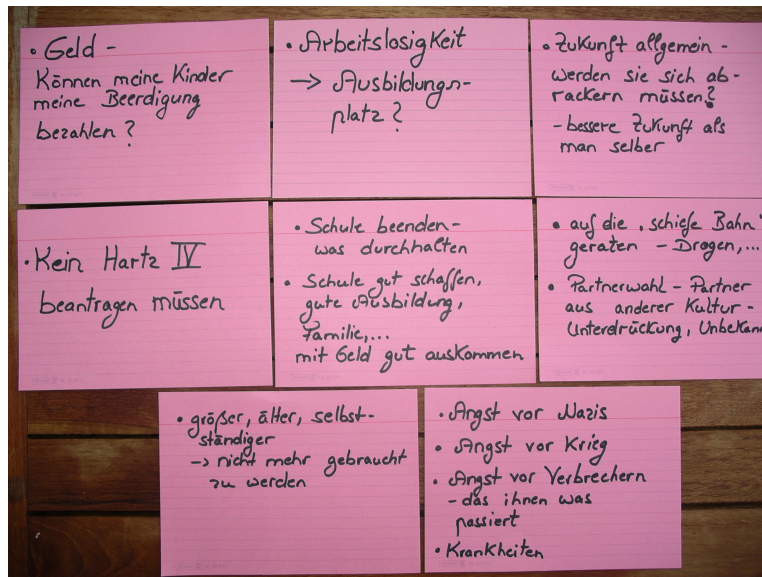 • Geld -
Können meine Kinder
meine Beerdigung
bezahlen ?
• Arbeitslosigkeit
→ Ausbildungs-
platz ?
• Zukunft allgemein -
werden sie sich ab-
rackern müssen?
- bessere Zukunft als
man selber
• Kein Hartz IV
beantragen müssen
• Schule beenden-
was durchhalten
• Schule gut schaffen,
gute Ausbildung,
Familie,...
mit Geld gut auskommen
• auf die "schiefe Bahn"
geraten - Drogen,...
• Partnerwahl - Partner
aus anderer Kultur -
Unterdrückung,
• größer, älter, selbst-
ständiger
-> nicht mehr gebraucht
zu werden
• Angst vor Nazis
• Angst vor Krieg
• Angst vor Verbrechern
- das ihnen was
passiert
• Krankheiten